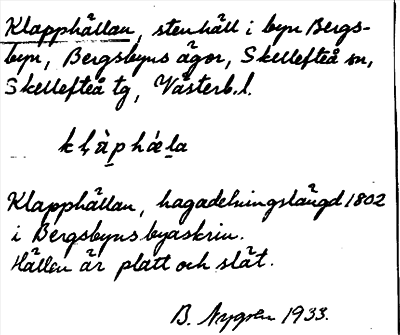 Klapphällan, stenhäll i byn Bergs-
byn, Bergsbyns ägor, Skellefteå sn,
Skellefteå tg, Västerb. l.
Klapphällan, hagadelningslängd 1802
i Bergsbyns byaskrin.
Hällen är platt och slät.
B. Nygren 1933.